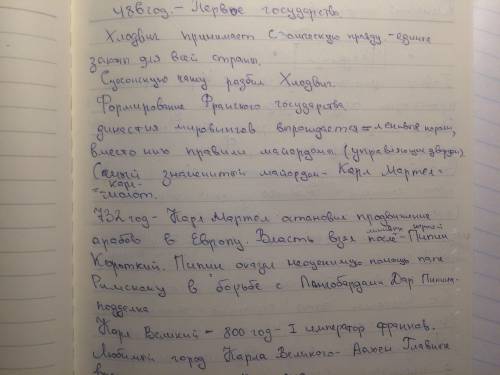 486 год. - Первое государство
Хлодвиг принимает Салическую правду - единые
законы для всей страны.
Суасонскую чашу разбил Хлодвиг.
Формирование Франского государства
династия мировингов вырождается = ленивые короли,
вместо них правили майордомы (управляющие двором)
Самый знаменитый майордом - Карл Мартел =
= Карл-
молот.
732 год - Карл Мартел остановил продвижение
арабов в Европу. Власть взял после - Пипин
Короткий. Пипин оказал неоценимую помощь папе
Римскому в борьбе с Лангобардами Дар Пипина -
подделка
Карл Великий - 800 год - I император франков.
Любимый город Карла Великого - Аахен Главная